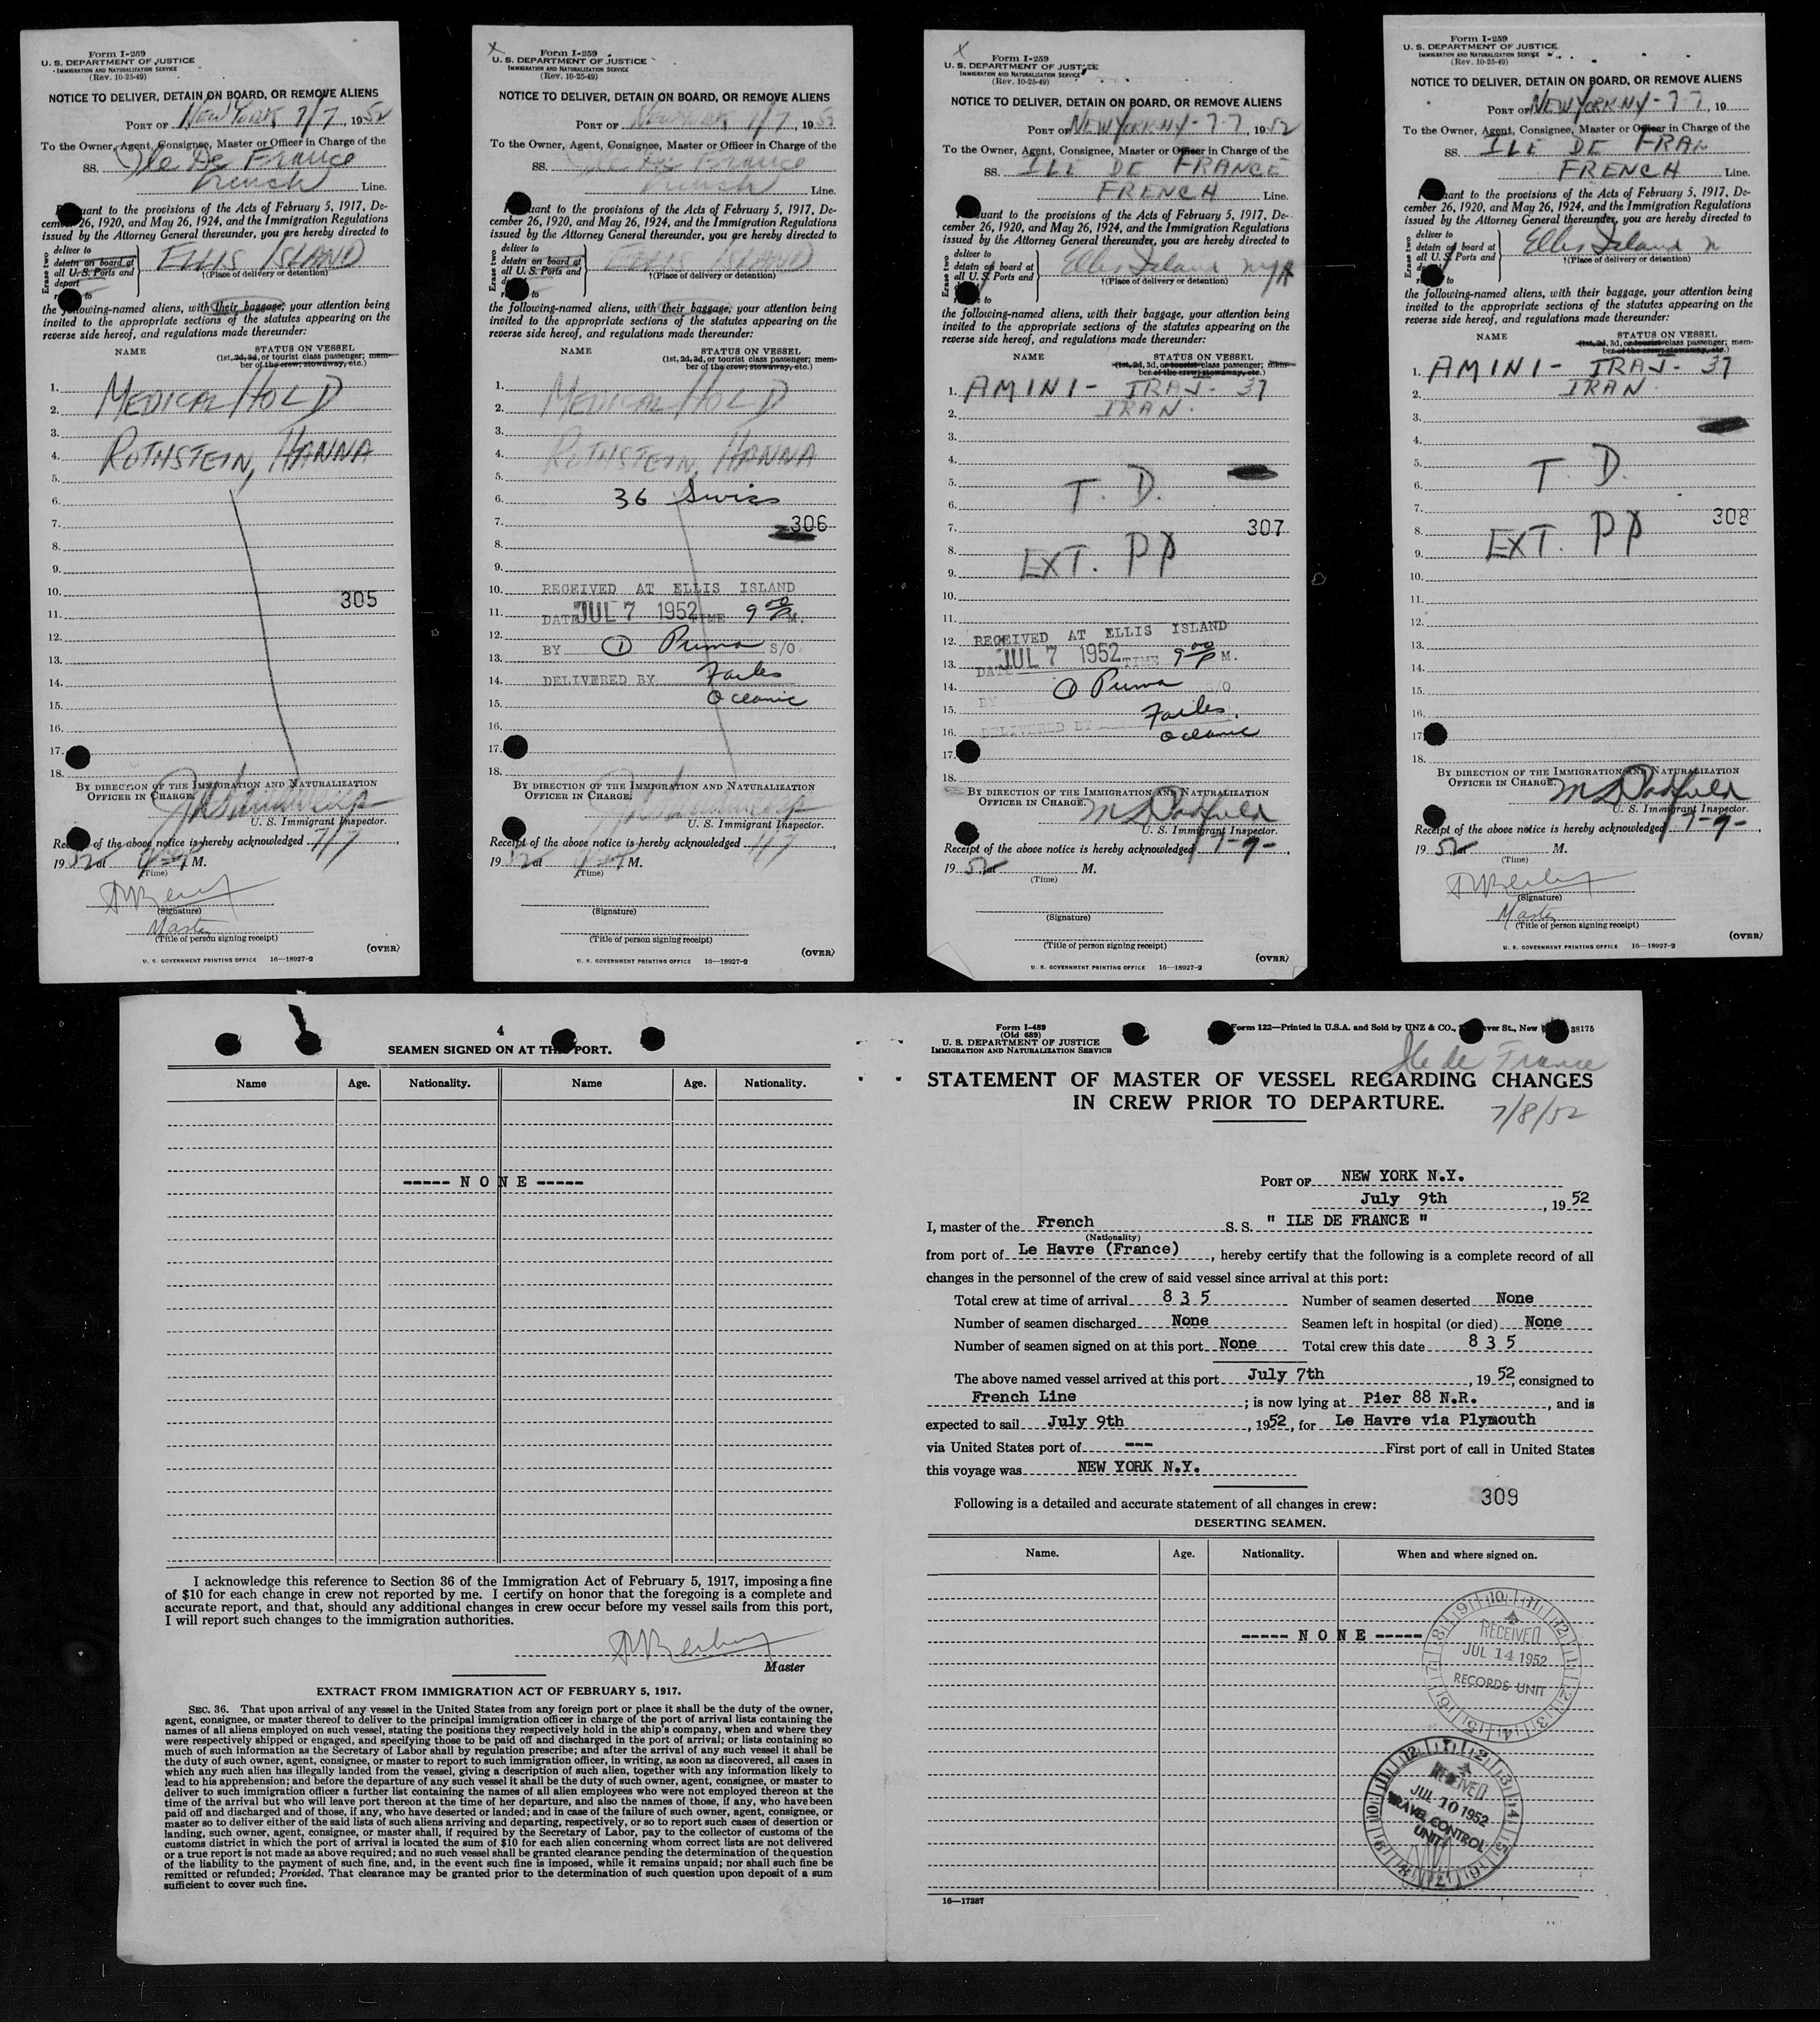 Form I-259
U. S. DEPARTMENT OF JUSTICE
IMMIGRATION AND NATURALIZATION SERVICE
(Rev. 10-25-49)
NOTICE TO DELIVER, DETAIN ON BOARD, OR REMOVE ALIENS
PORT OF New York 7/7, 1952
To the Owner, Agent, Consignee, Master or Officer in Charge of the
SS. Ile De France
French Line.
uant to the provisions of the Acts of February 5, 1917, De-
cember 26, 1920, and May 26, 1924, and the Immigration Regulations
issued by the Attorney General thereunder, you are hereby directed to
Erase two
deliver to
detain on board at
all U. S. Ports and
deport
to
ELLIS ISLAND
†(Place of delivery or detention)
the following-named aliens, with their baggage, your attention being
invited to the appropriate sections of the statutes appearing on the
reverse side hereof, and regulations made thereunder:
NAME STATUS ON VESSEL
(1st, 2d, 3d, or tourist class passenger; mem-
ber of the crew; stowaway, etc.)
1.
2. MEDICAL HOLD
3.
4. ROTHSTEIN, HANNA
5.
6.
7.
8.
9.
10. 305
11.
12.
13.
14.
15.
16.
17.
18.
BY DIRECTION OF THE IMMIGRATION AND NATURALIZATION
OFFICER IN CHARGE.
U. S. Immigrant Inspector.
Receipt of the above notice is hereby acknowledged 7/7,
1952 at M.
(Time)
(Signature)
Master
(Title of person signing receipt)
(OVER)
U. S. GOVERNMENT PRINTING OFFICE 16—18927-2
X
Form I-259
U. S. DEPARTMENT OF JUSTICE
IMMIGRATION AND NATURALIZATION SERVICE
(Rev. 10-25-49)
NOTICE TO DELIVER, DETAIN ON BOARD, OR REMOVE ALIENS
PORT OF New York 7/7, 1952
To the Owner, Agent, Consignee, Master or Officer in Charge of the
SS. Ile De France
French Line.
uant to the provisions of the Acts of February 5, 1917, De-
cember 26, 1920, and May 26, 1924, and the Immigration Regulations
issued by the Attorney General thereunder, you are hereby directed to
Erase two
deliver to
detain on board at
all U. S. Ports and
to
ELLIS ISLAND
†(Place of delivery or detention)
the following-named aliens, with their baggage, your attention being
invited to the appropriate sections of the statutes appearing on the
reverse side hereof, and regulations made thereunder:
NAME STATUS ON VESSEL
(1st, 2d, 3d, or tourist class passenger; mem-
ber of the crew; stowaway, etc.)
1.
2. MEDICAL HOLD
3.
4. ROTHSTEIN, HANNA
5.
6. 36 Swiss
7. 306
8.
9.
10. RECEIVED AT ELLIS ISLAND
11. DATE JUL 7 1952 TIME 9 00 P M.
12. BY Puma S/O
13.
14. DELIVERED BY Failes
15. Oceanic
16.
17.
18.
BY DIRECTION OF THE IMMIGRATION AND NATURALIZATION
OFFICER IN CHARGE.
U. S. Immigrant Inspector.
Receipt of the above notice is hereby acknowledged 7/7,
1952 at M.
(Time)
(Signature)
(Title of person signing receipt)
(OVER)
U. S. GOVERNMENT PRINTING OFFICE 16—18927-2
X
Form I-259
U. S. DEPARTMENT OF JUSTICE
IMMIGRATION AND NATURALIZATION SERVICE
(Rev. 10-25-49)
NOTICE TO DELIVER, DETAIN ON BOARD, OR REMOVE ALIENS
PORT OF NEW YORK NY - 7 7, 1952
To the Owner, Agent, Consignee, Master or Officer in Charge of the
SS. ILE DE FRANCE
FRENCH Line.
suant to the provisions of the Acts of February 5, 1917, De-
cember 26, 1920, and May 26, 1924, and the Immigration Regulations
issued by the Attorney General thereunder, you are hereby directed to
Erase two
deliver to
detain on board at
all U. S. Ports and
to
Ellis Island NY
†(Place of delivery or detention)
the following-named aliens, with their baggage, your attention being
invited to the appropriate sections of the statutes appearing on the
reverse side hereof, and regulations made thereunder:
NAME STATUS ON VESSEL
(1st, 2d, 3d, or tourist class passenger; mem-
ber of the crew; stowaway, etc.)
1. AMINI - IRAJ - 37
2. IRAN.
3.
4.
5. T. D.
6.
7. 307
8. EXT. PP
9.
10.
11.
12. RECEIVED AT ELLIS ISLAND
13. DATE JUL 7 1952 TIME 9 00 P M.
14. BY Puma S/O
15. Failes.
16. DELIVERED BY Oceanic
17.
18.
BY DIRECTION OF THE IMMIGRATION AND NATURALIZATION
OFFICER IN CHARGE.
U. S. Immigrant Inspector.
Receipt of the above notice is hereby acknowledged 7-9-,
1952 at M.
(Time)
(Signature)
(Title of person signing receipt)
(OVER)
U. S. GOVERNMENT PRINTING OFFICE 16—18927-2
Form I-259
U. S. DEPARTMENT OF JUSTICE
IMMIGRATION AND NATURALIZATION SERVICE
(Rev. 10-25-49)
NOTICE TO DELIVER, DETAIN ON BOARD, OR REMOVE ALIENS
PORT OF NEW YORK NY - 7 7, 19
To the Owner, Agent, Consignee, Master or Officer in Charge of the
SS. ILE DE FRAN
FRENCH Line.
uant to the provisions of the Acts of February 5, 1917, De-
cember 26, 1920, and May 26, 1924, and the Immigration Regulations
issued by the Attorney General thereunder, you are hereby directed to
Erase two
deliver to
detain on board at
all U. S. Ports and
to
Ellis Island N
†(Place of delivery or detention)
the following-named aliens, with their baggage, your attention being
invited to the appropriate sections of the statutes appearing on the
reverse side hereof, and regulations made thereunder:
NAME STATUS ON VESSEL
(1st, 2d, 3d, or tourist class passenger; mem-
ber of the crew; stowaway, etc.)
1. AMINI - IRAJ - 37
2. IRAN
3.
4.
5. T. D.
6.
7. 308
8. EXT. PP
9.
10.
11.
12.
13.
14.
15.
16.
17.
18.
BY DIRECTION OF THE IMMIGRATION AND NATURALIZATION
OFFICER IN CHARGE.
U. S. Immigrant Inspector.
Receipt of the above notice is hereby acknowledged 7-9-,
1952 at M.
(Time)
(Signature)
Master
(Title of person signing receipt)
(OVER)
U. S. GOVERNMENT PRINTING OFFICE 16—18927-2
4
SEAMEN SIGNED ON AT THIS PORT.
Name Age. Nationality. Name Age. Nationality.
----- N O N E -----
I acknowledge this reference to Section 36 of the Immigration Act of February 5, 1917, imposing a fine
of $10 for each change in crew not reported by me. I certify on honor that the foregoing is a complete and
accurate report, and that, should any additional changes in crew occur before my vessel sails from this port,
I will report such changes to the immigration authorities.
Master
EXTRACT FROM IMMIGRATION ACT OF FEBRUARY 5, 1917.
SEC. 36. That upon arrival of any vessel in the United States from any foreign port or place it shall be the duty of the owner,
agent, consignee, or master thereof to deliver to the principal immigration officer in charge of the port of arrival lists containing the
names of all aliens employed on such vessel, stating the positions they respectively hold in the ship's company, when and where they
were respectively shipped or engaged, and specifying those to be paid off and discharged in the port of arrival; or lists containing so
much of such information as the Secretary of Labor shall by regulation prescribe; and after the arrival of any such vessel it shall be
the duty of such owner, agent, consignee, or master to report to such immigration officer, in writing, as soon as discovered, all cases in
which any such alien has illegally landed from the vessel, giving a description of such alien, together with any information likely to
lead to his apprehension; and before the departure of any such vessel it shall be the duty of such owner, agent, consignee, or master to
deliver to such immigration officer a further list containing the names of all alien employees who were not employed thereon at the
time of the arrival but who will leave port thereon at the time of her departure, and also the names of those, if any, who have been
paid off and discharged and of those, if any, who have deserted or landed; and in case of the failure of such owner, agent, consignee, or
master so to deliver either of the said lists of such aliens arriving and departing, respectively, or so to report such cases of desertion or
landing, such owner, agent, consignee, or master shall, if required by the Secretary of Labor, pay to the collector of customs of the
customs district in which the port of arrival is located the sum of $10 for each alien concerning whom correct lists are not delivered
or a true report is not made as above required; and no such vessel shall be granted clearance pending the determination of the question
of the liability to the payment of such fine, and, in the event such fine is imposed, while it remains unpaid; nor shall such fine be
remitted or refunded; Provided, That clearance may be granted prior to the determination of such question upon deposit of a sum
sufficient to cover such fine.
Form I-489
(Old 689)
U. S. DEPARTMENT OF JUSTICE
IMMIGRATION AND NATURALIZATION SERVICE
Form 122—Printed in U.S.A. and Sold by UNZ & CO., ver St., New 38175
Ile de France
STATEMENT OF MASTER OF VESSEL REGARDING CHANGES
IN CREW PRIOR TO DEPARTURE.
7/8/52
PORT OF NEW YORK N.Y.
July 9th, 1952
I, master of the French S. S. " ILE DE FRANCE "
(Nationality)
from port of Le Havre (France), hereby certify that the following is a complete record of all
changes in the personnel of the crew of said vessel since arrival at this port:
Total crew at time of arrival 8 3 5 Number of seamen deserted None
Number of seamen discharged None Seamen left in hospital (or died) None
Number of seamen signed on at this port None Total crew this date 8 3 5
The above named vessel arrived at this port July 7th, 1952, consigned to
French Line; is now lying at Pier 88 N.R., and is
expected to sail July 9th, 1952, for Le Havre via Plymouth
via United States port of --- First port of call in United States
this voyage was NEW YORK N.Y.
309
Following is a detailed and accurate statement of all changes in crew:
DESERTING SEAMEN.
Name. Age. Nationality. When and where signed on.
----- N O N E -----
RECEIVED
JUL 14 1952
RECORDS UNIT
RECEIVED
JUL 10 1952
TRAVEL CONTROL
UNIT
16—17387